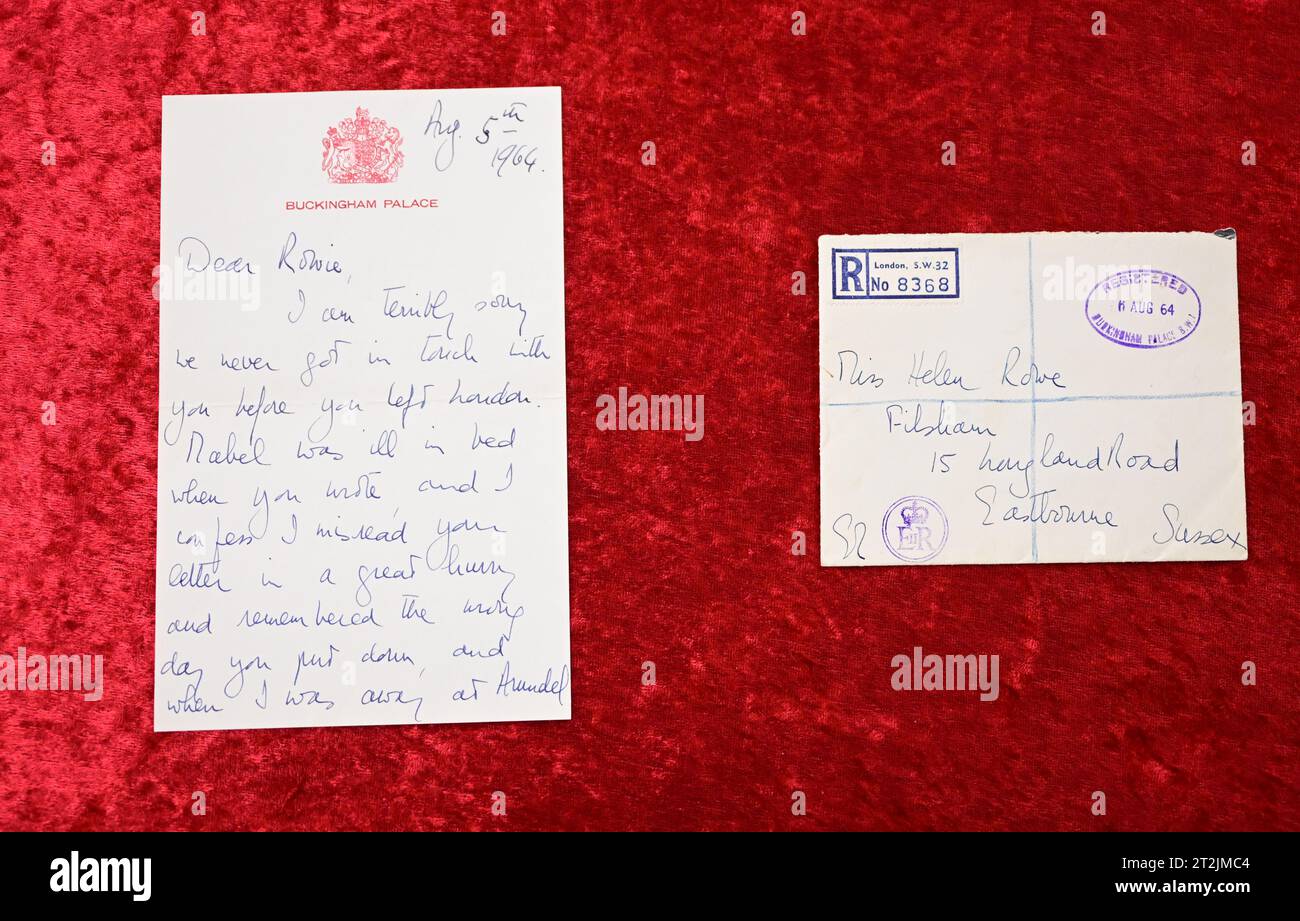 Aug. 5th
1964.
BUCKINGHAM PALACE
Dear Rowie,
I am terribly sorry
we never got in touch with
you before you left London.
Mabel was ill in bed
when you wrote, and I
confess I misread your
letter in a great hurry
and remembered the wrong
day you put down, and
when I was away at Arundel
R
London, S.W.32
No 8368
REGISTERED
6 AUG 64
BUCKINGHAM PALACE S.W.1
Miss Helen Rowe
Filsham
15 Road
Eastbourne
Sussex
EIIR
alamy
Image ID: 2T2JMC4
www.alamy.com